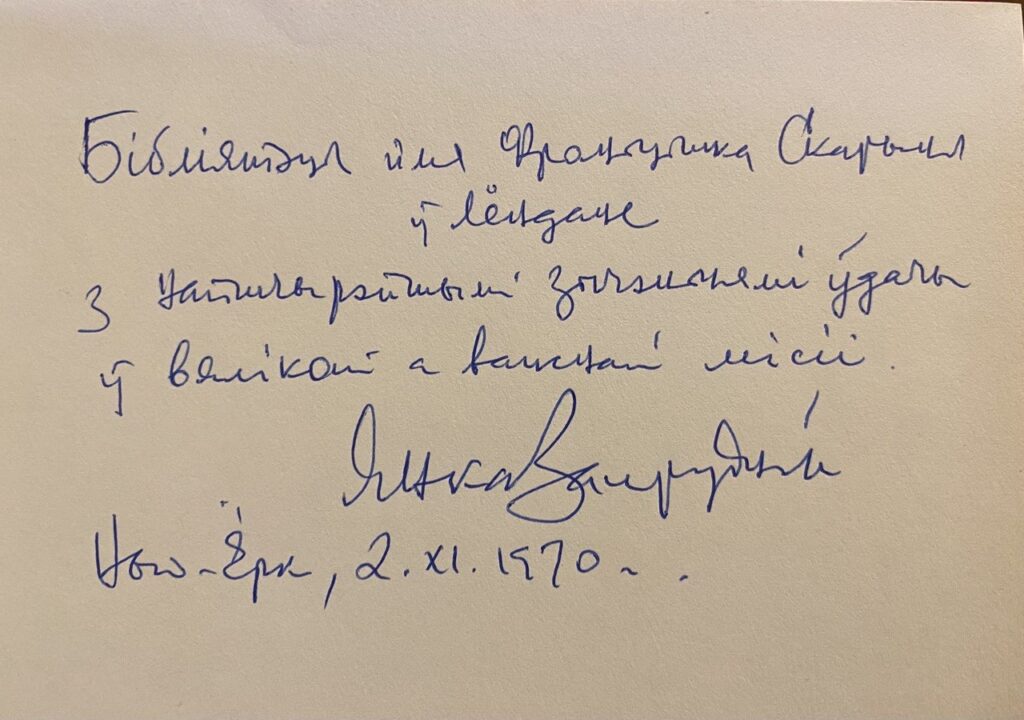 Бібліятэцы імя Францышка Скарыны
ў Лёндане
З найшчырэйшымі зычэньнямі ўдачы
ў вялікай а важнай місіі.
Янка Запруднік
Нью-Ёрк, 2.XI.1970 г.